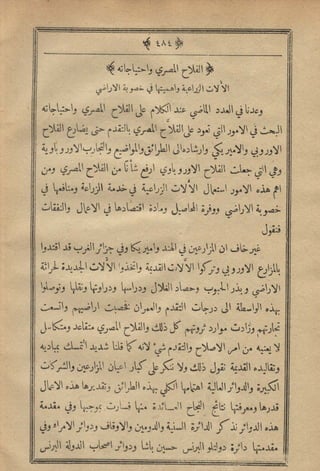 ﴿ ٤٨٤ ﴾
﴿ الفلاح المصري واحتياجاته ﴾
الآلات الزراعية واهميتها في خصوبة الاراضي
وعدنا في العدد الماضي عند الكلام على الفلاح المصري واحتياجاته
البحث في الامور التي تعود على الفلاح المصري بالتقدم حتى يضارع الفلاح
الاوروبي والاميركي وارشاده الى الطرائق والمواضيع والتجارب الاوروباوية
وهي التي جعلت الفلاح الاوروباوي ارفع شأناً من الفلاح المصري ومن
اهم هذه الامور استعمال الآلات الزراعية في خدمة الزراعة ومنافعها في
خصوبة الاراضي ووفرة المحاصيل ومادة اقتصادها في الاعمال والنفقات
فنقول
غير خاف ان المزارعين في الهند واميركا وفي جزائر الغرب قد اقتدوا
بالمزارع الاوروبي وتركوا الآلات القديمة واتخذوا الآلات الجديدة لحراثة
الاراضي وبذر الحبوب وحصاد الغلال ودراسها ودراوتها ونقلها وتوصلوا
بهذه الواسطة الى درجات التقدم والعمران فخصبت اراضيهم واتسعت
تجارتهم وزادت موارد ثروتهم كل ذلك والفلاح المصري متقاعد ومتكاسل
لا يعنيه من امر الاصلاح والتقدم شيء لانه كما قلنا شديد التمسك بمباديه
وتقاليده القديمة نقول ذلك ولا ننكر على كبار اعيان المزارعين والشركات
الكبيرة والدوائر العالية اهتمامها الكلي بهذه الطرائق وتقديرها هذه الاعمال
قدرها ومعرفتها نتائج النجاح العائدة منها فسارت بموجبها وفي مقدمة
هذه الدوائر نذكر الدائرة السنية والدومين والاوقاف ودوائر الامراء وفي
مقدمتها دائرة دولتلو البرنس حسين باشا ودوائر اصحاب الدولة البرنس